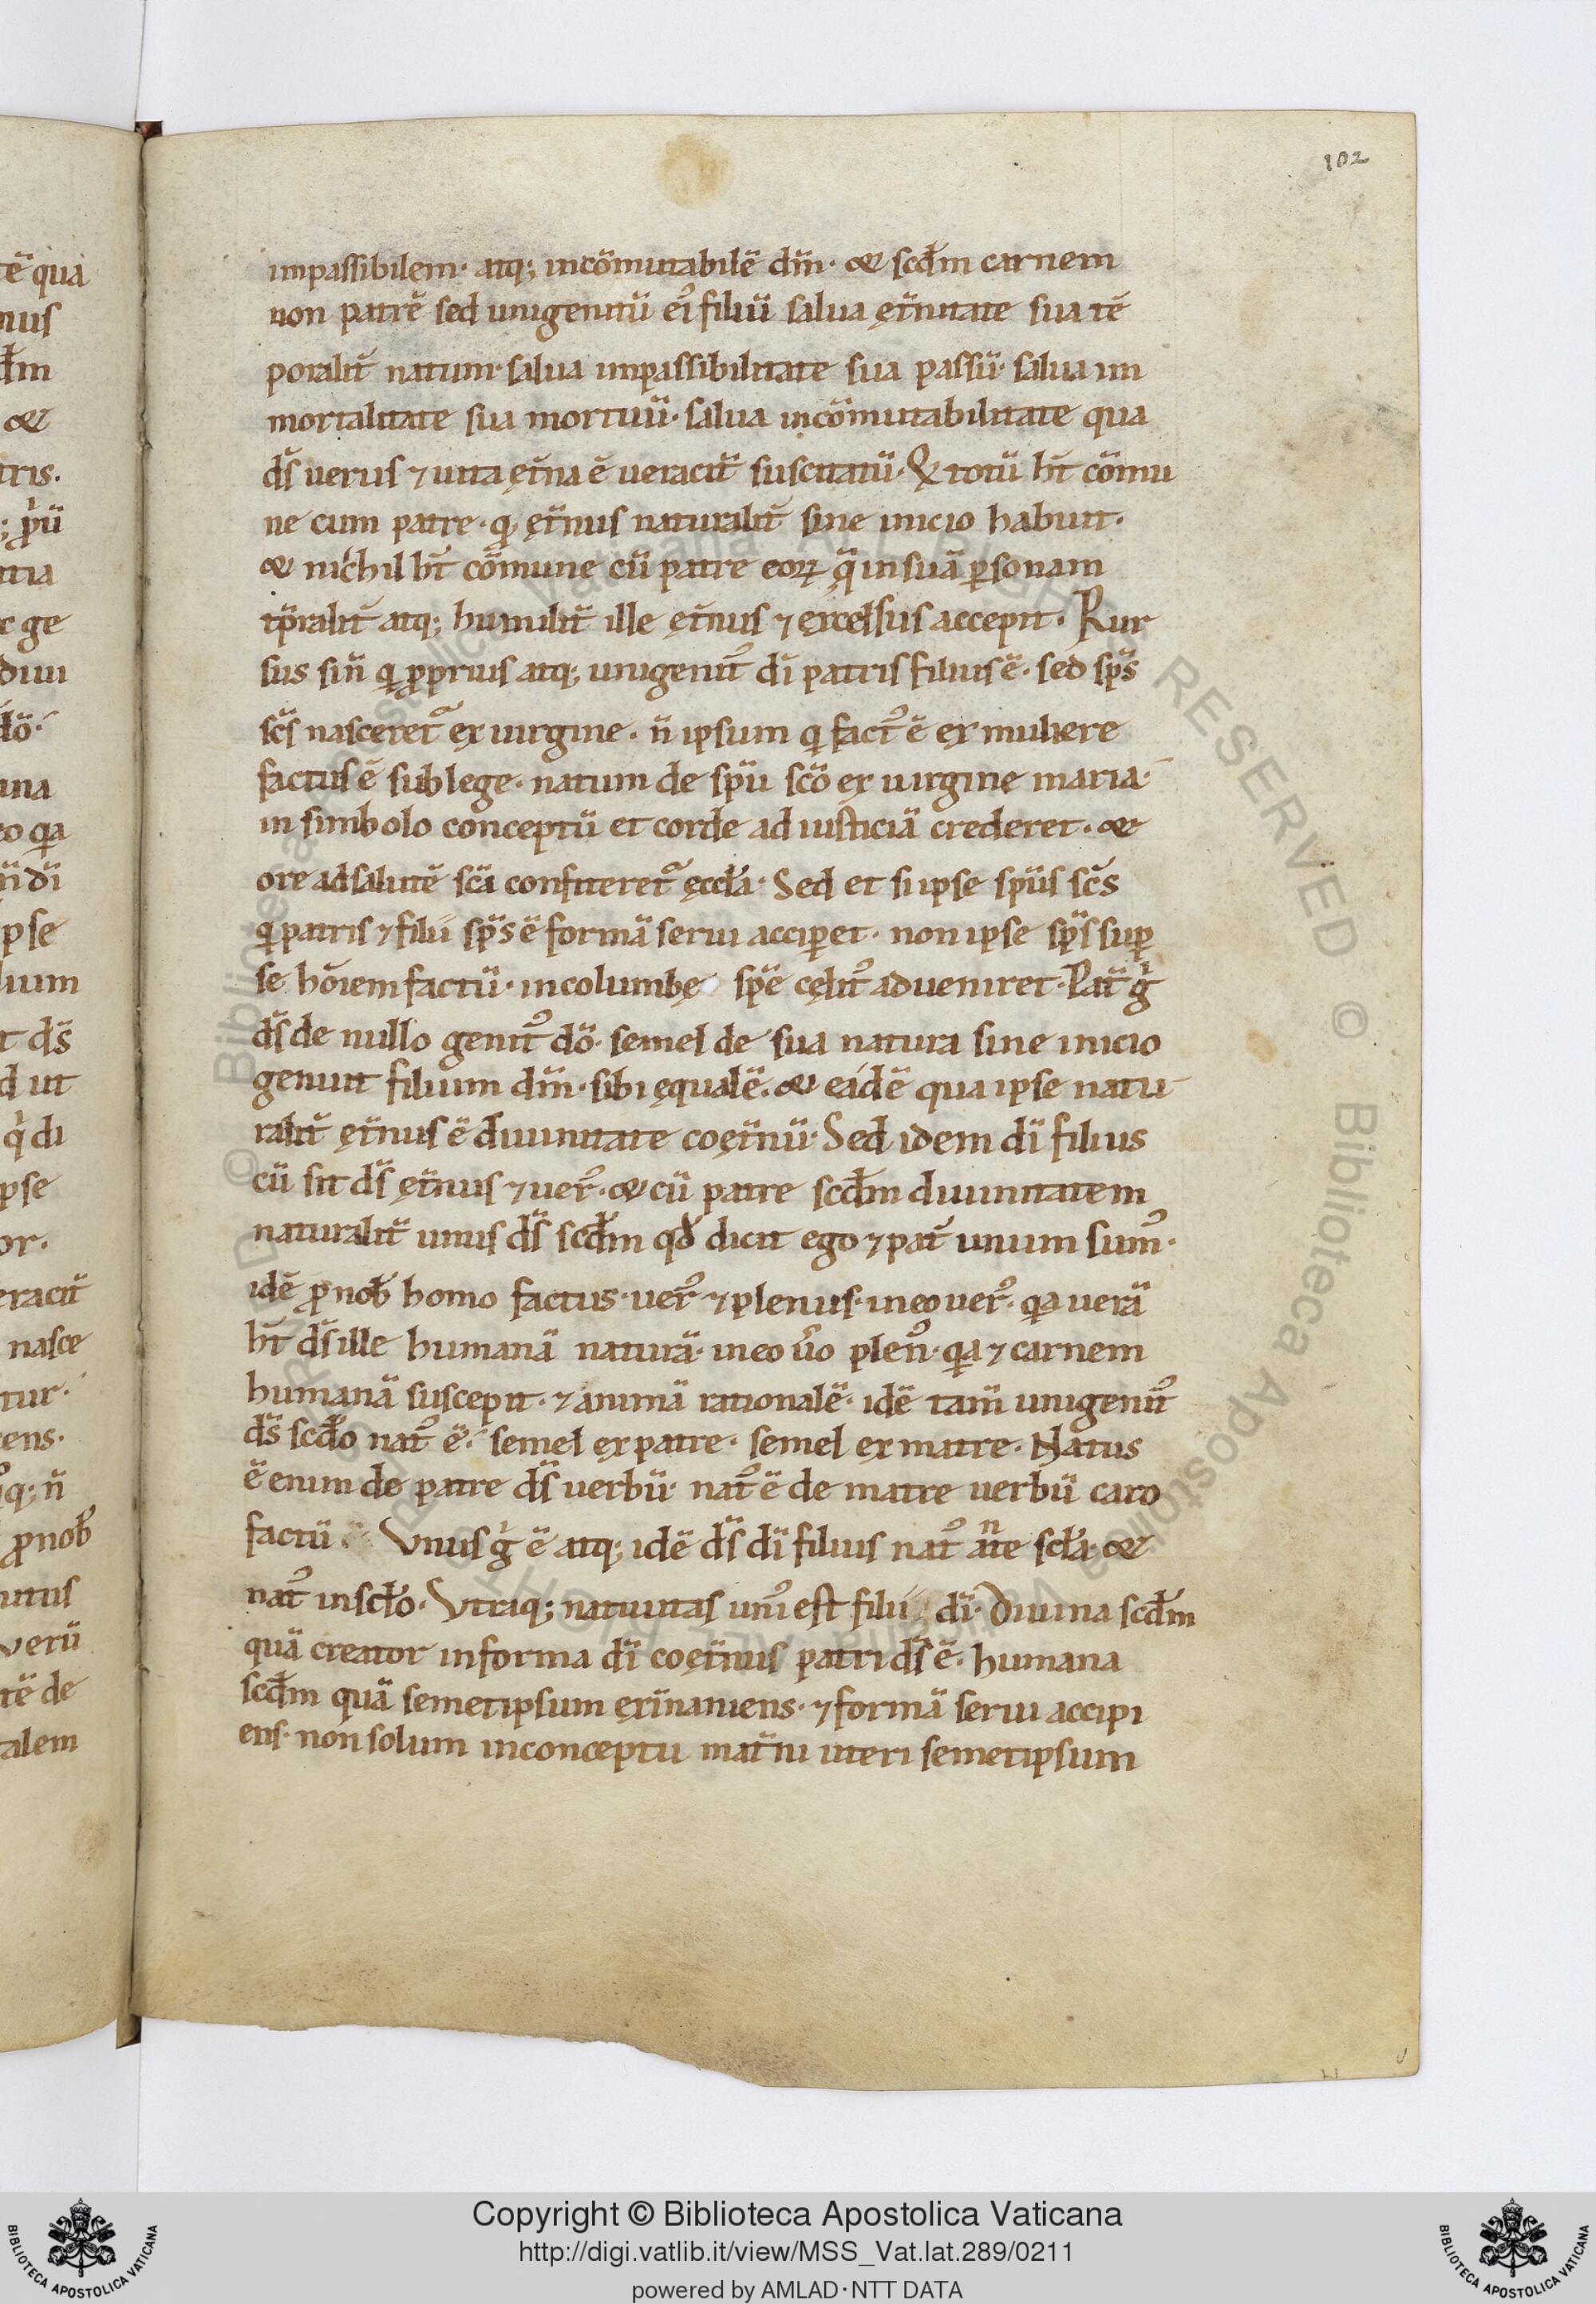 102
impassibilem· atq; incōmutabilē dm̄· & scd̄m carnem
non patrē sed unigenitū ei᾿ filiū salua ęt̄nitate sua tē
poralit̄ natum· salua impassibilitate sua passū· salua im
mortalitate sua mortuū· salua incōmutabilitate qua
ds̄ uerus ⁊ uita ęt̄na ē ueracit̄ suscitatū· Q totū ht̄ cōmu
ne cum patre· qꝫ ęt̄nus naturalit̄ sine inicio habuit·
& nichil ht̄ cōmune cū patre eoꝝ q̄ in suā ꝑsonam
tp̄ralit̄ atq; humilit̄ ille ęt̄nus ⁊ excelsus accepit· Rur
sus sin̄ q ꝓprius atq; unigenit᾿ dī patris filius ē· sed sp̄s
sc̄s nasceret᷑ ex uirgine· n̄ ipsum q fact᾿ ē ex muliere
factus ē sub lege· natum de spū scō ex uirginę maria·
in simbolo conceptū et corde ad iusticiā crederet· &
ore ad salutē scā confiteret᷑ ęccl̄a· Sed et si ipse spūs sc̄s
q patris ⁊ filii sp̄s ē formā serui acciꝑet· non ipse sp̄s suꝑ
se hōiem factū· in columbę spē cęlit᾿ adueniret· Pat̄ g̊
ds̄ de nullo genit᾿ dō· semel de sua natura sine inicio
genuit filium dm̄· sibi ęqualē· & eadē qua ipse natu
ralit̄ ęt̄nus ē diuinitate coęt̄nū· Sed idem dī filius
cū sit ds̄ ęt̄nus ⁊ uer᾿· & cū patre scd̄m diuinitatem
naturalit̄ unus ds̄ scd̄m qd̄ dicit ego ⁊ pat̄ unum sum᾿·
idē ꝓ nob̄ homo factus· uer᾿ ⁊ plenus· in eo uer᾿· qa uerā
ht̄ ds̄ ille humanā naturā· in eo ůo plen᾿· qa ⁊ carnem
humanā suscepit· ⁊ animā rationalē· idē tam̄ unigenit᾿
ds̄ scd̄o nat᾿ ē· semel ex patre· semel ex matre· Natus
ē enim de patre ds̄ uerbū· nat᾿ ē de matre uerbū caro
factū· Vnus g̊ ē atq; idē ds̄ dī filius nat᾿ an̄te scl̄a· &
nat᾿ in scl̄o· Vtraq; natiuitas uni᾿ est filii dī· Diuina scd̄m
quā creator in forma dī coęt̄nus patri ds̄ ē· humana
scd̄m quā semetipsum exinaniens· ⁊ formā serui accipi
ens· non solum in conceptu mat̄ni uteri semetipsum
Copyright © Biblioteca Apostolica Vaticana
http://digi.vatlib.it/view/MSS_Vat.lat.289/0211
powered by AMLAD·NTT DATA
BIBLIOTECA APOSTOLICA VATICANA
BIBLIOTECA APOSTOLICA VATICANA